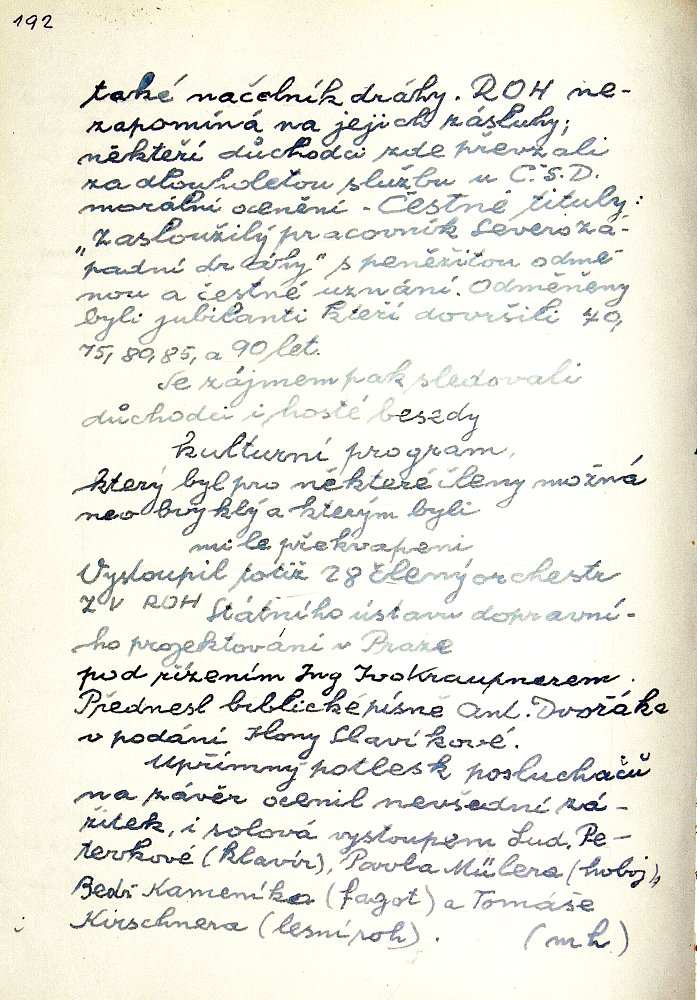 192
také načelník dráhy. ROH ne-
zapomíná na jejich zásluhy;
někteří důchodci zde převzali
za dlouholetou službu u Č.S.D.
morální ocenění - Čestné tituly:
„Zasloužilý pracovník Severozá-
padní dráhy" s peněžitou odmě-
nou a čestné uznání. Odměněny
byli jubilanti kteří dovršili 70,
75, 80, 85, a 90 let.
Se zájmem pak sledovali
důchodci i hosté besedy
kulturní program,
který byl pro některé členy možná
neobvyklý a kterým byli
mile překvapeni
Vystoupil totiž 28 členný orchestr
ZV ROH Státního ústavu dopravní-
ho projektování v Praze
pod řízením Ing Ivo Kraupnerem.
Přednesl biblické písně Ant. Dvořáka
v podání Ilony Slavíkové.
Upřímný potlesk posluchačů
na závěr ocenil nevšední zá-
žitek, i solová vystoupem Lud. Pe-
terkové (klavír), Pavla Mülera (hoboj),
Bedř Kameníka (fagot) a Tomáše
Kirschnera (lesní roh). (mh)